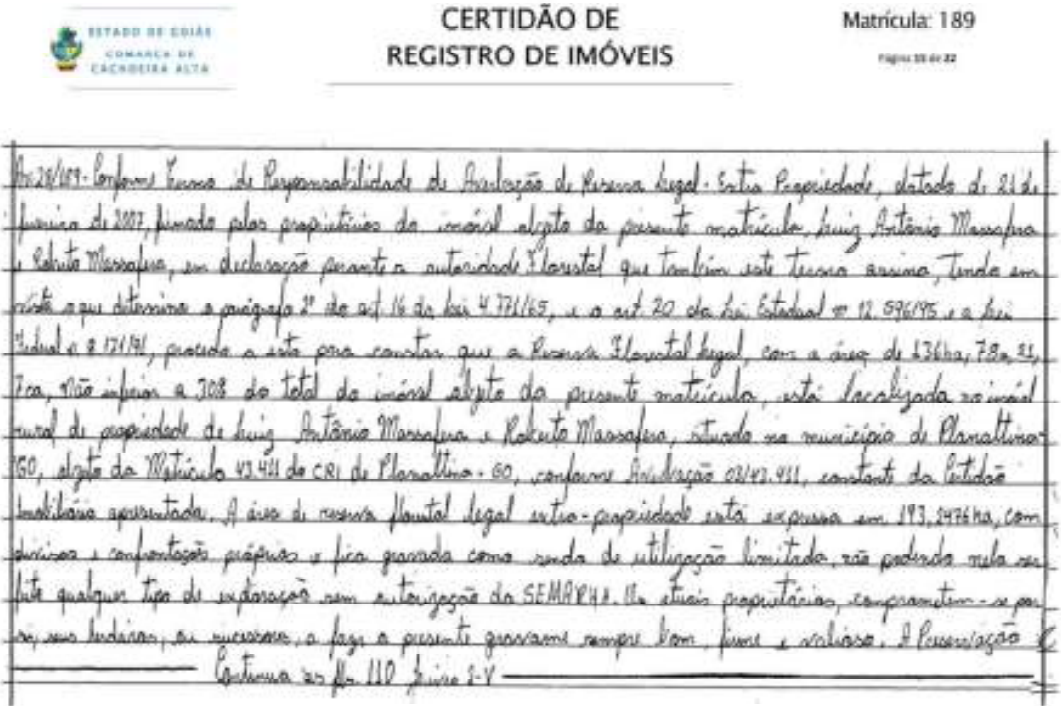 ESTADO DE GOIÁS
COMARCA DE
CACHOEIRA ALTA
CERTIDÃO DE
REGISTRO DE IMÓVEIS
Matrícula: 189
Página de 22
Av.28/189- Conforme Termo de Responsabilidade de Averbação de Reserva Legal - Extra Propriedade, datado de 21 de
de 2007, firmado pelos proprietários do imóvel objeto da presente matrícula, Luiz Antônio Massafera
e Roberto Massafera, em declaração perante a autoridade Florestal que também este termo assina, tendo em
vista o que determina o parágrafo 2º do art. 16 da lei 4.771/65, e o art. 20 da Lei Estadual nº 12.596/95 e a lei
Federal nº 8.171/91, procedo a esta para constar que a Reserva Florestal Legal, com a área de 136ha,
não inferior a 30% do total do imóvel objeto da presente matrícula, está localizada no imóvel
rural de propriedade de Luiz Antônio Massafera e Roberto Massafera, situado no município de Planaltina-
GO, objeto da Matrícula 43.411 do CRI de Planaltina-GO, conforme Averbação 03/43.411, constante da Certidão
Imobiliária apresentada. A área de reserva florestal legal extra-propriedade está expressa em 193,2476ha, com
divisas e confrontações próprias e fica gravada como de utilização limitada, não podendo nela ser
feito qualquer tipo de exploração sem autorização da SEMARHA. Os atuais proprietários, comprometem-se por
si, seus herdeiros, ou sucessores, a fazer o presente gravame sempre bom, firme e valioso. A Preservação
Continua às fls. 110 Livro 2-V